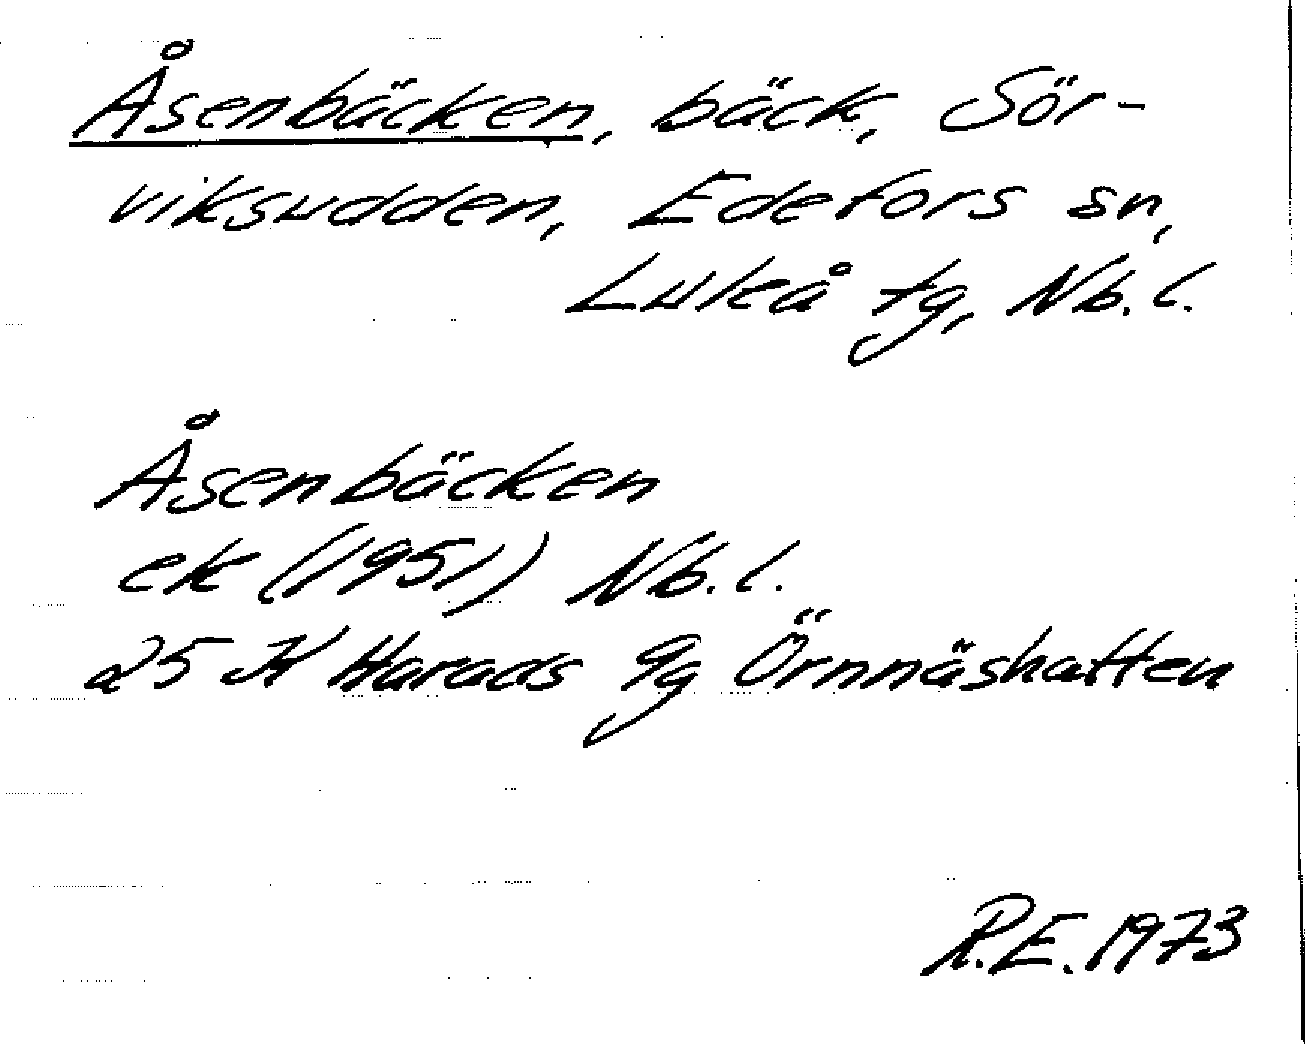 Åsenbäcken, bäck, Sör-
viksudden, Edefors sn,
Luleå tg, Nb.l.
Åsenbäcken
ek (1951) Nb.l.
25 K Harads 9g Örnnäshatten
R.E. 1973